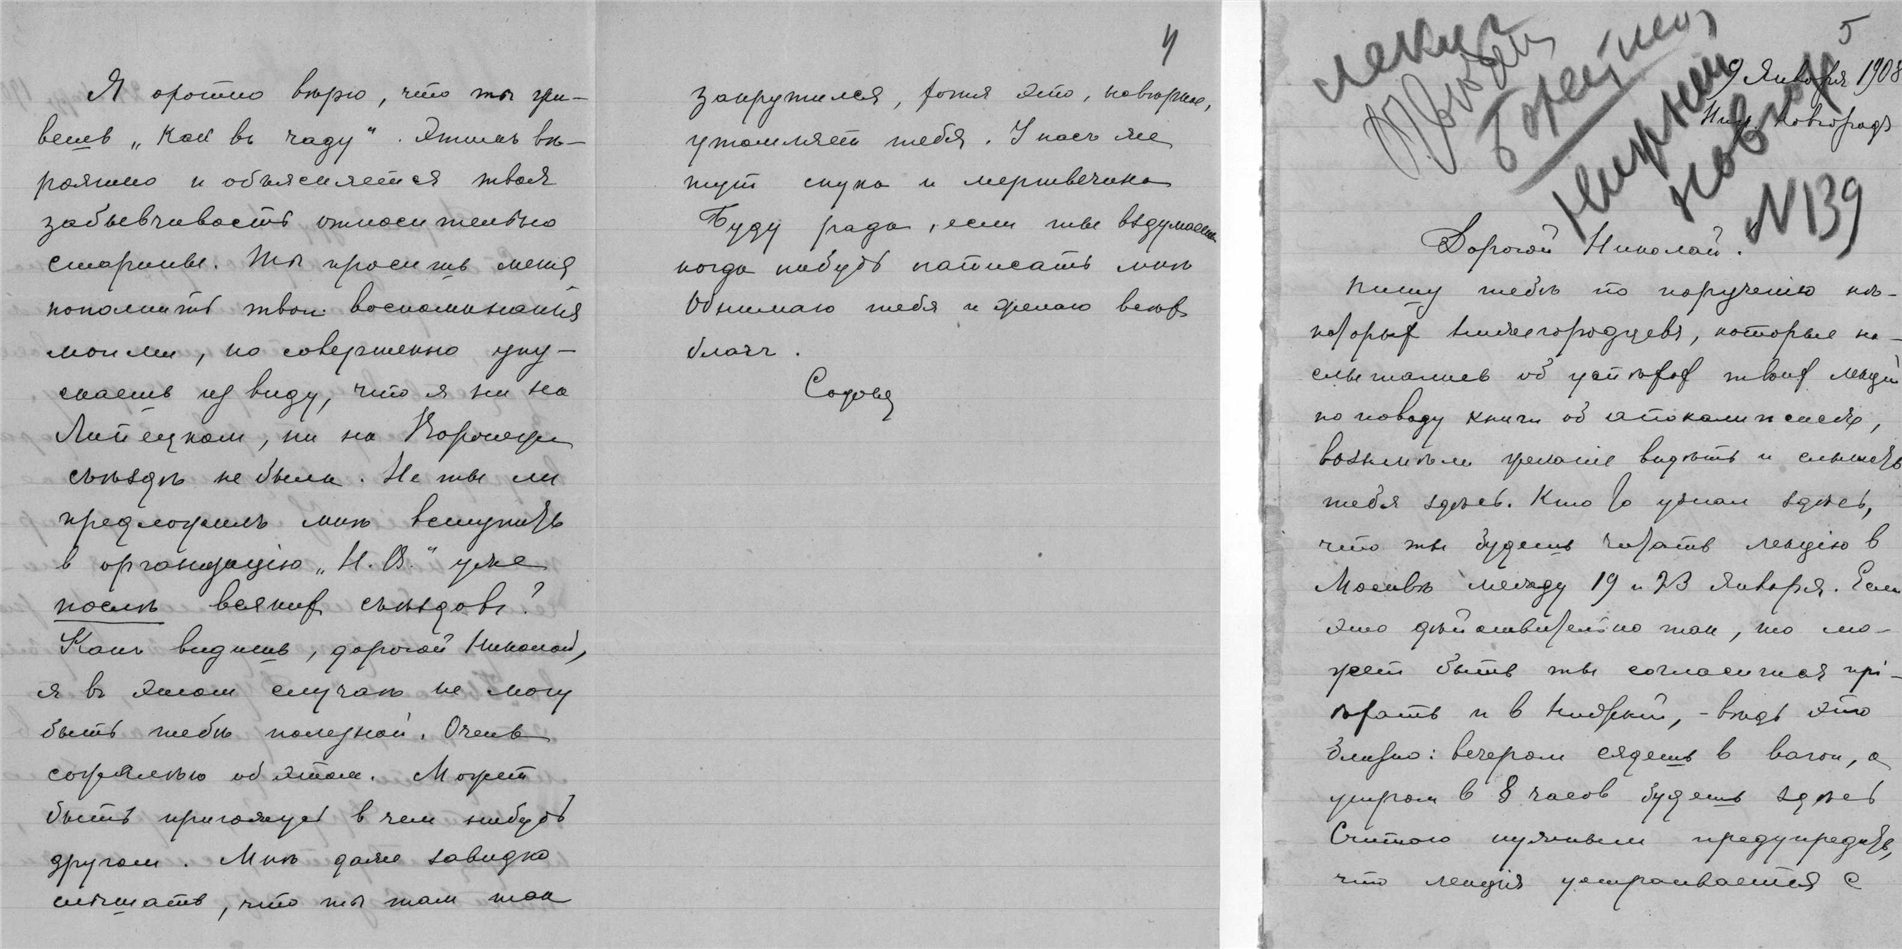 Я охотно вѣрю, что ты жи-
вешь „какъ въ чаду“. Этимъ вѣ-
роятно и объясняется твоя
забывчивость относительно
старины. Ты просишь меня
пополнить твои воспоминания
моими, но совершенно упу-
скаешь из виду, что я ни на
Липецком, ни на Воронеж
съѣздѣ не была. Не ты ли
предложилъ мнѣ вступить
в организацію „Н. В.“ уже
послѣ всяких съѣздовъ?
Какъ видишь, дорогой Николай,
я въ этом случаѣ не могу
быть тебѣ полезной. Очень
сожалѣю об этом. Может
быть пригожусь в чем нибудь
другом. Мнѣ даже завидно
слышать, что ты там так
4
закружился, хотя это, навѣрное,
утомляет тебя. У насъ же
тут скука и мертвечина
Буду рада, если ты вздумаешь
когда нибудь написать мнѣ
Обнимаю тебя и желаю всѣхъ
благъ.
5
9 Января 1908
Ниж Новгородъ
лекц
Нижний
Новгор
N139
Дорогой Николай.
Пишу тебѣ по порученію нѣ-
которых нижегородцевъ, которые на-
слышались об успѣхах твоих лекцій
по поводу книги об апокалипсисѣ,
возымѣли желаніе видѣть и слышать
тебя здѣсь. Кто то узнал здѣсь,
что ты будешь читать лекцію в
Москвѣ между 19 и 23 января. Если
это дѣйствительно так, то мо-
жет быть ты согласишся прі-
ѣхать и в Нижній, - вѣдь это
близко: вечером сядешь в вагон, а
утром в 8 часов будешь здѣсь
Считаю нужным предупредить,
что лекція устраивается с